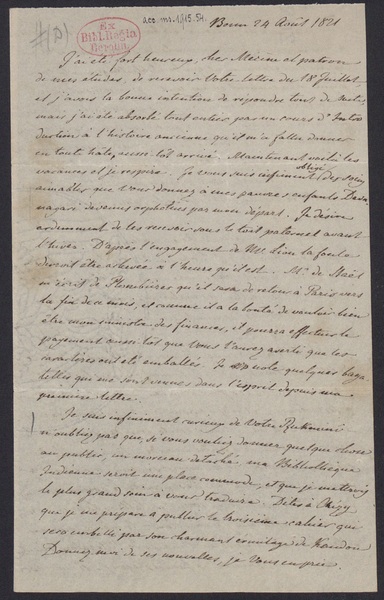 acc. ms. 1915.54.
Ex
Bibl. Regia
Berolin.
Bonn 24 Août 1821
J'ai été fort heureux, cher Mécène et patron
de mes études, de recevoir Votre lettre du 18 Juillet
et j'avois la bonne intention de repondre tout de suite,
mais j'ai été absorbé tout entier par un cours d'Intro-
duction à l'histoire ancienne qu'il m'a fallu donner
en toute hâte, aussitôt arrivé. Maintenant voilà les
vacances et je respire. Je vous suis infiniment obligé des soins
aimables que Vous donnez à mes pauvres enfants Deva-
nagari devenus orphelins par mon départ. Je désire
ardemment de les revoir sous le toit paternel avant
l'hiver. D'après l'engagement de Mr. Lion la foule
devroit être achevée à l'heure qu'il est. Mr. de Staël
m'écrit de Plombières qu'il sera de retour à Paris vers
la fin de ce mois, et comme il a la bonté de vouloir bien
être mon ministre des finances, il pourra effectuer le
payement aussitôt que Vous l'aurez averti que les
caractères ont été emballés. Je note quelques baga-
telles qui me sont venues dans l'esprit depuis ma
première lettre.
Je suis infiniment curieux de Votre
n'oubliez pas que si vous vouliez donner quelque chose
au public, un morceau detaché, ma Bibliothèque
Indienne seroit une place commode, et que je mettrois
le plus grand soin à vous traduire. Dites à Chézy
que je me prépare à publier le troisième cahier que
sera embelli par son charmant hermitage de Kandou
Donnez-moi de ses nouvelles, je Vous en prie.